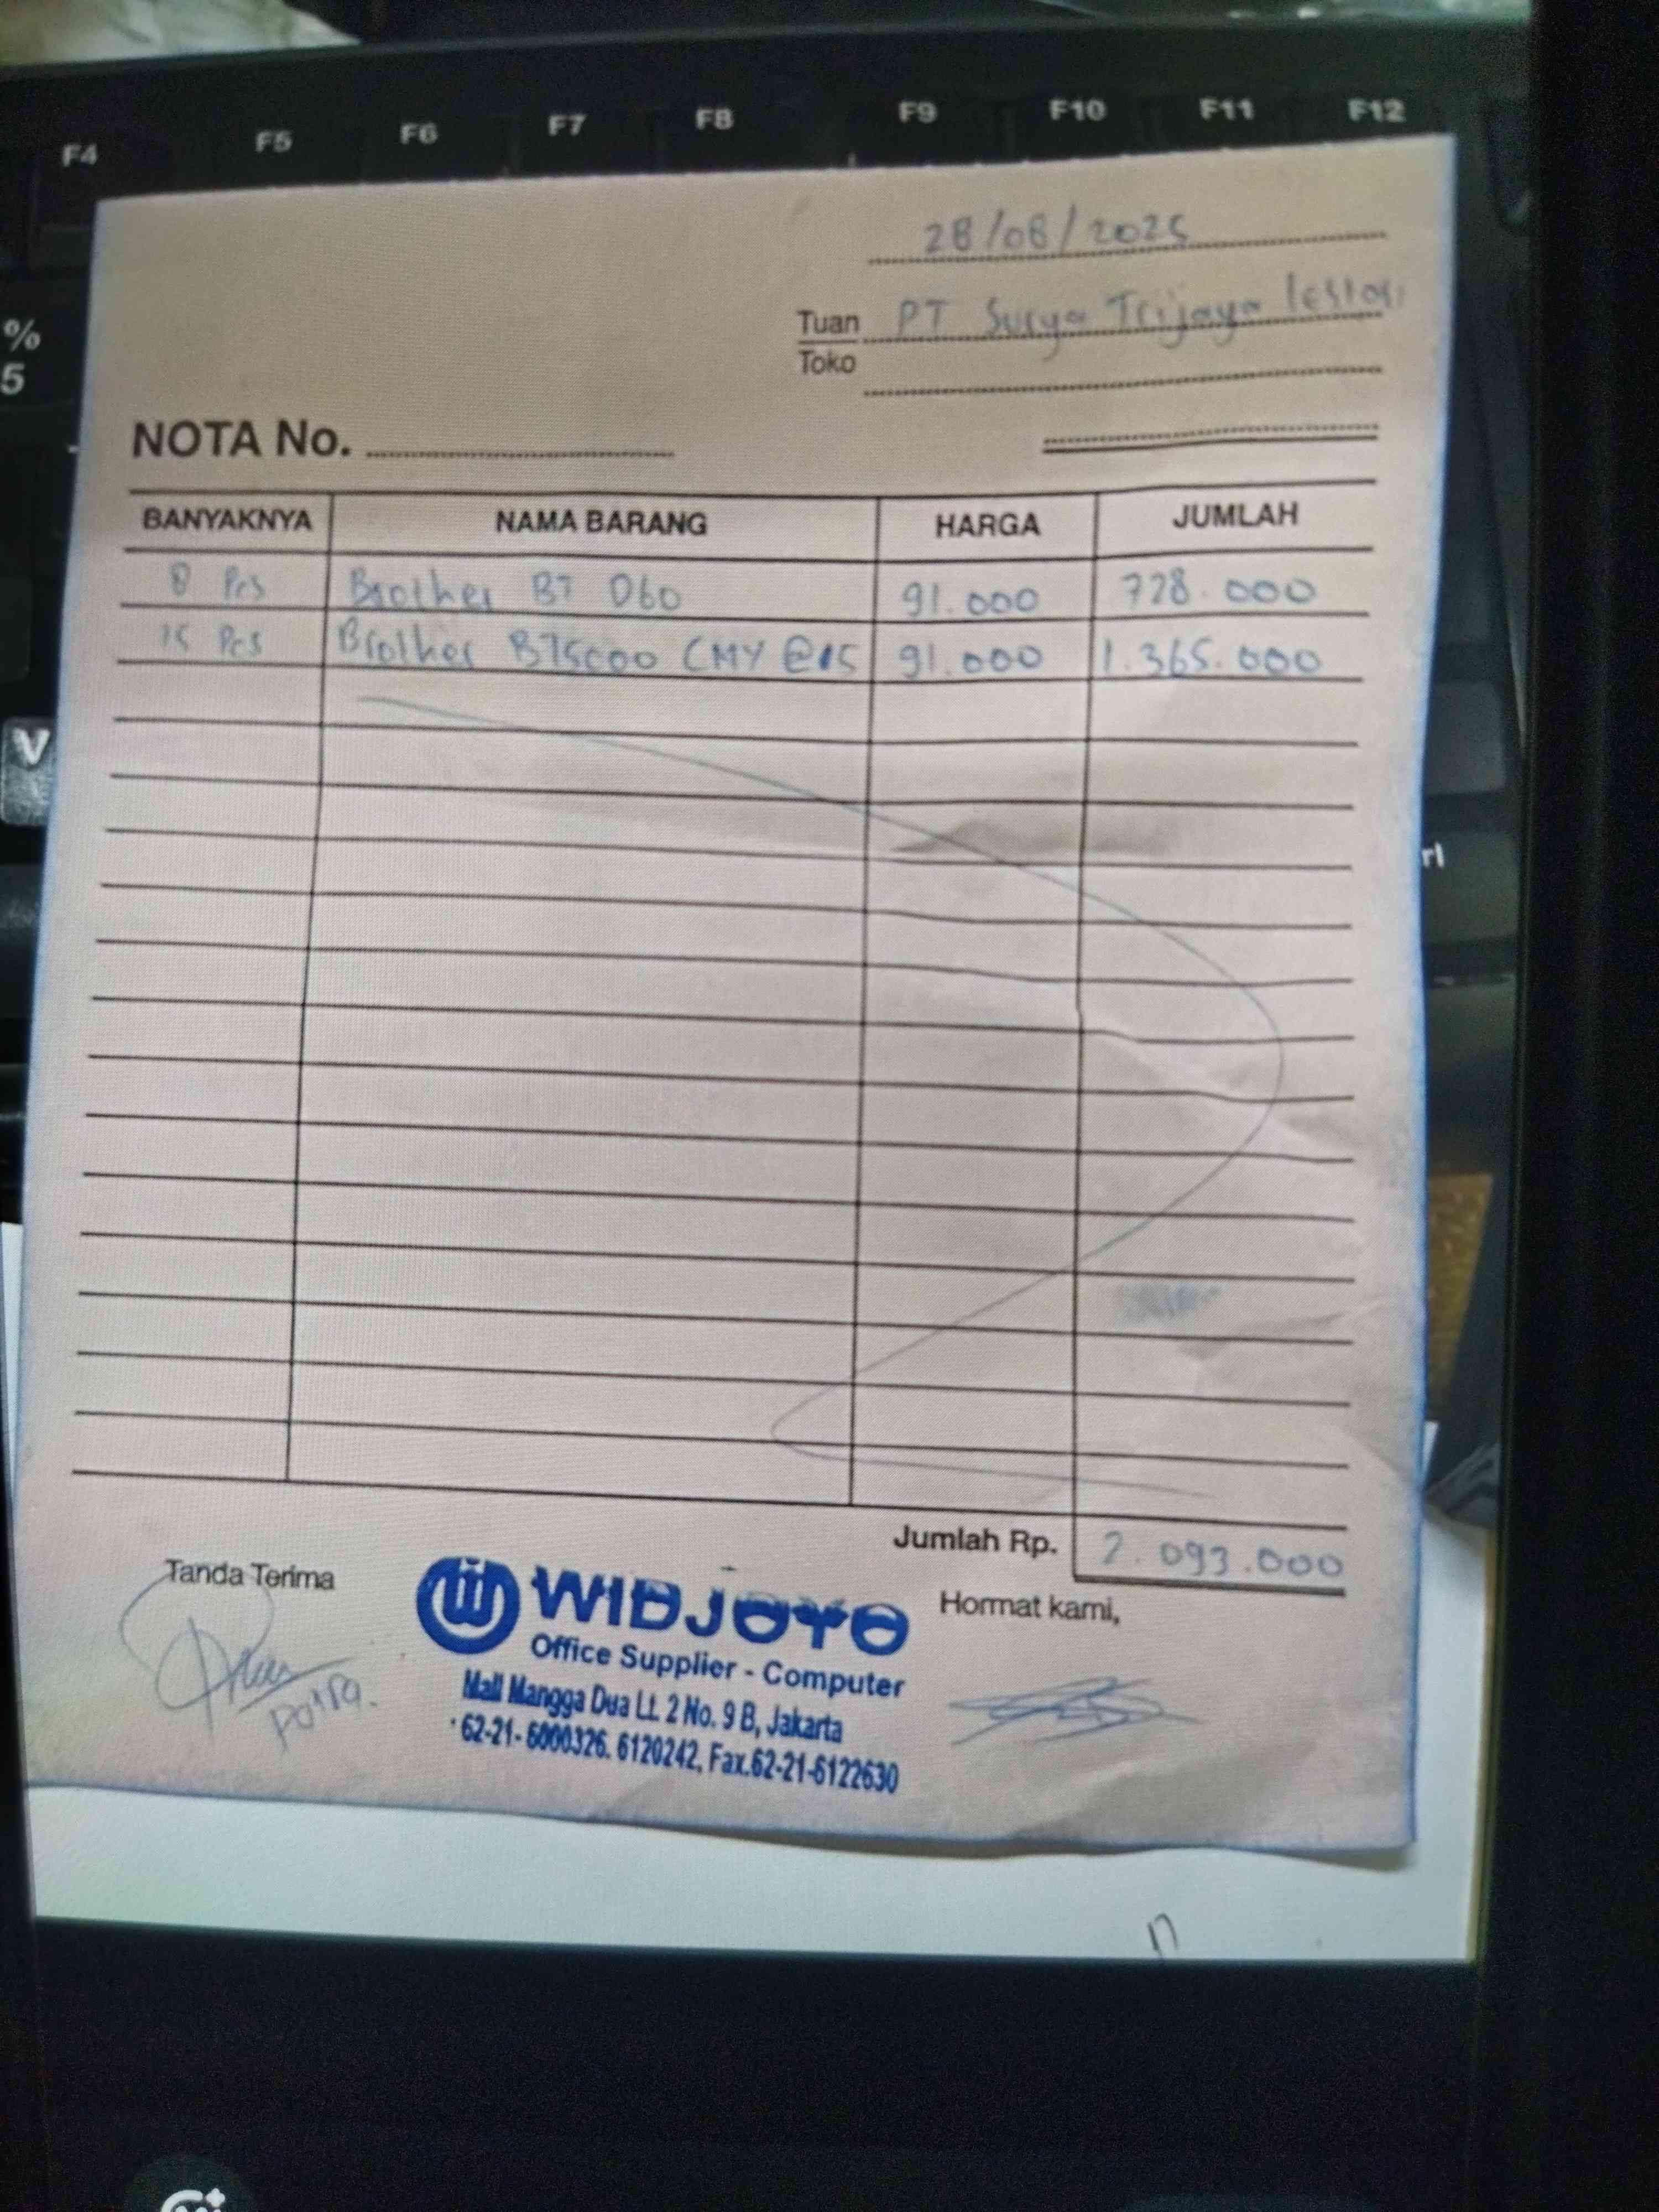 F4 F5 F6 F7 F8 F9 F10 F11 F12
%
5
V
rl
28/08/2025
Tuan PT Surya Trijaya lestari
Toko
NOTA No.
BANYAKNYA NAMA BARANG HARGA JUMLAH
8 Pcs Brother BT D60 91.000 728.000
15 Pcs Brother BT5000 CMY @15 91.000 1.365.000
Jumlah Rp. 2.093.000
Tanda Terima
Hormat kami,
WIDJOYO
Office Supplier - Computer
Mall Mangga Dua Lt. 2 No. 9 B, Jakarta
62-21- 6000326. 6120242, Fax.62-21-6122630